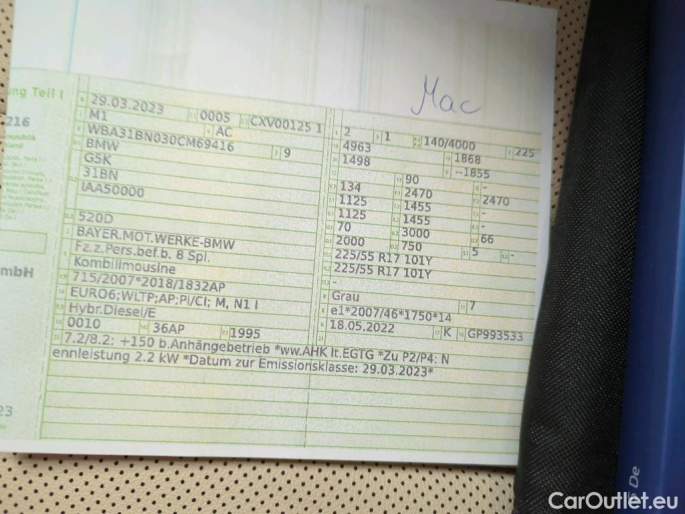 Mac
ng Teil I
216
29.03.2023 0005 CXV00125 1
M1 AC
WBA31BN030CM69416 9
BMW
G5K
31BN
IAA50000
520D
BAYER.MOT.WERKE-BMW
Fz.z.Pers.bef.b. 8 Spl.
Kombilimousine
715/2007*2018/1832AP
EURO6;WLTP;AP;PI/CI; M, N1 I
Hybr.Diesel/E
0010 36AP 1995
2 1 140/4000 225
4963 1868
1498 --1855
90 -
134 2470 2470
1125 1455 -
1125 1455 -
70 3000 66
2000 750 5 -
225/55 R17 101Y
225/55 R17 101Y
-
Grau 7
e1*2007/46*1750*14
18.05.2022 K GP993533
7.2/8.2: +150 b.Anhängebetrieb *ww.AHK lt.EGTG *Zu P2/P4: N
ennleistung 2.2 kW *Datum zur Emissionsklasse: 29.03.2023*
mbH
23
De
CarOutlet.eu